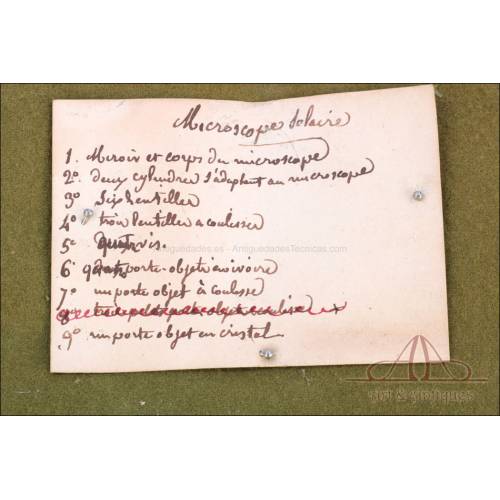 Microscope Solaire
1. Miroir et corps du microscope
2º. deux cylindres s'adaptant au microscope
3º Six lentilles
4º trois lentilles a coulisses
5º vis.
6º quatre porte-objets en ivoire
7º un porte objet à coulisse
8º
9º un porte objet en cristal
Antiguedades.es - AntiguedadesTecnicas.com
Art & Antiques